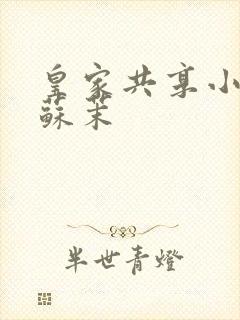 皇家共享小
蘇茉
半世青燈